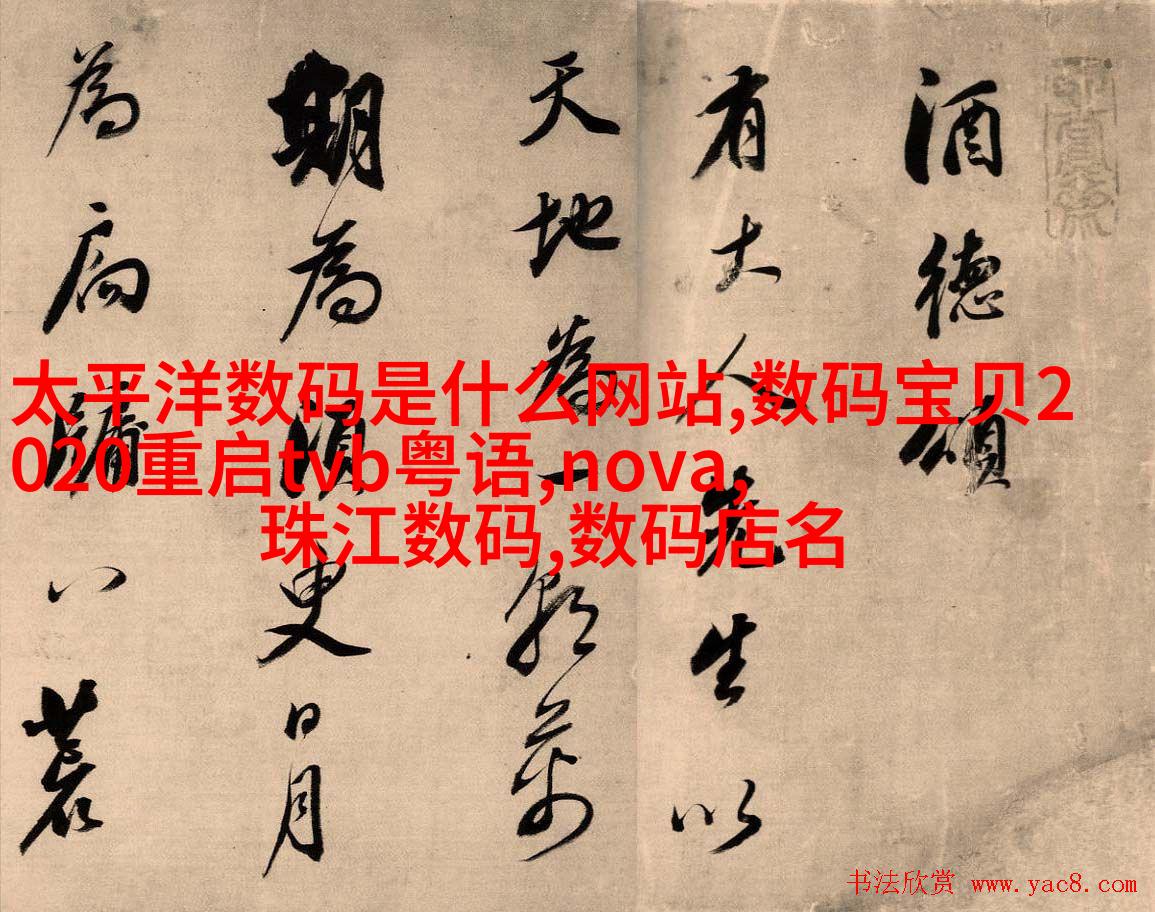 酒德頌
有大人先生以
天地為一朝萬
期為須臾日月
為扃牖八荒
太平洋数码是什么网站,数码宝贝2
020重启tvb粤语,nova,
珠江数码,数码店名
书法欣赏 www.yac8.com